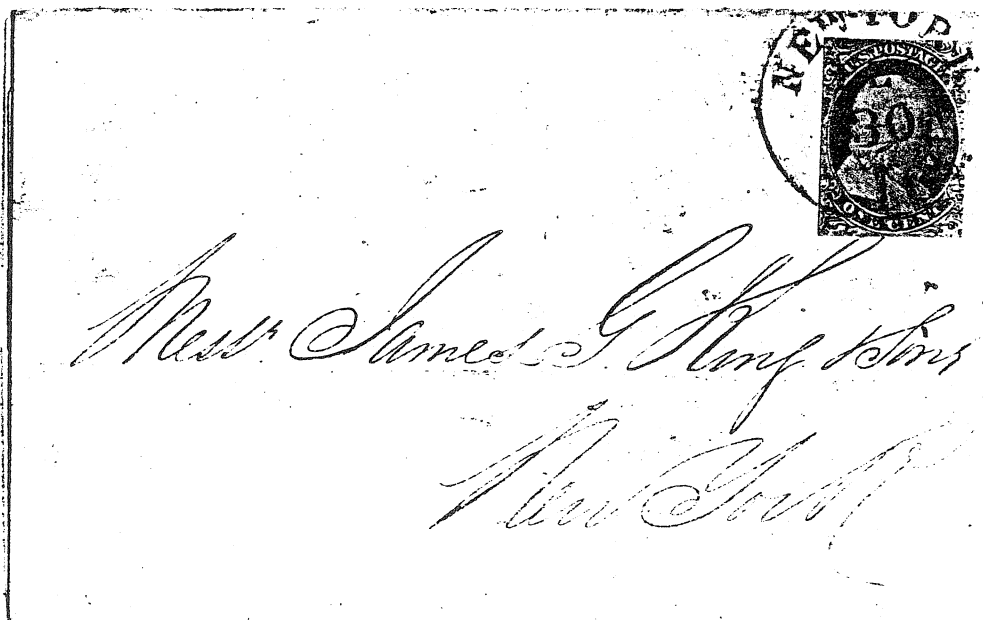 NEW-YORK
U.S. POSTAGE
30
ONE CENT
Messrs. James G. King & Sons
New York